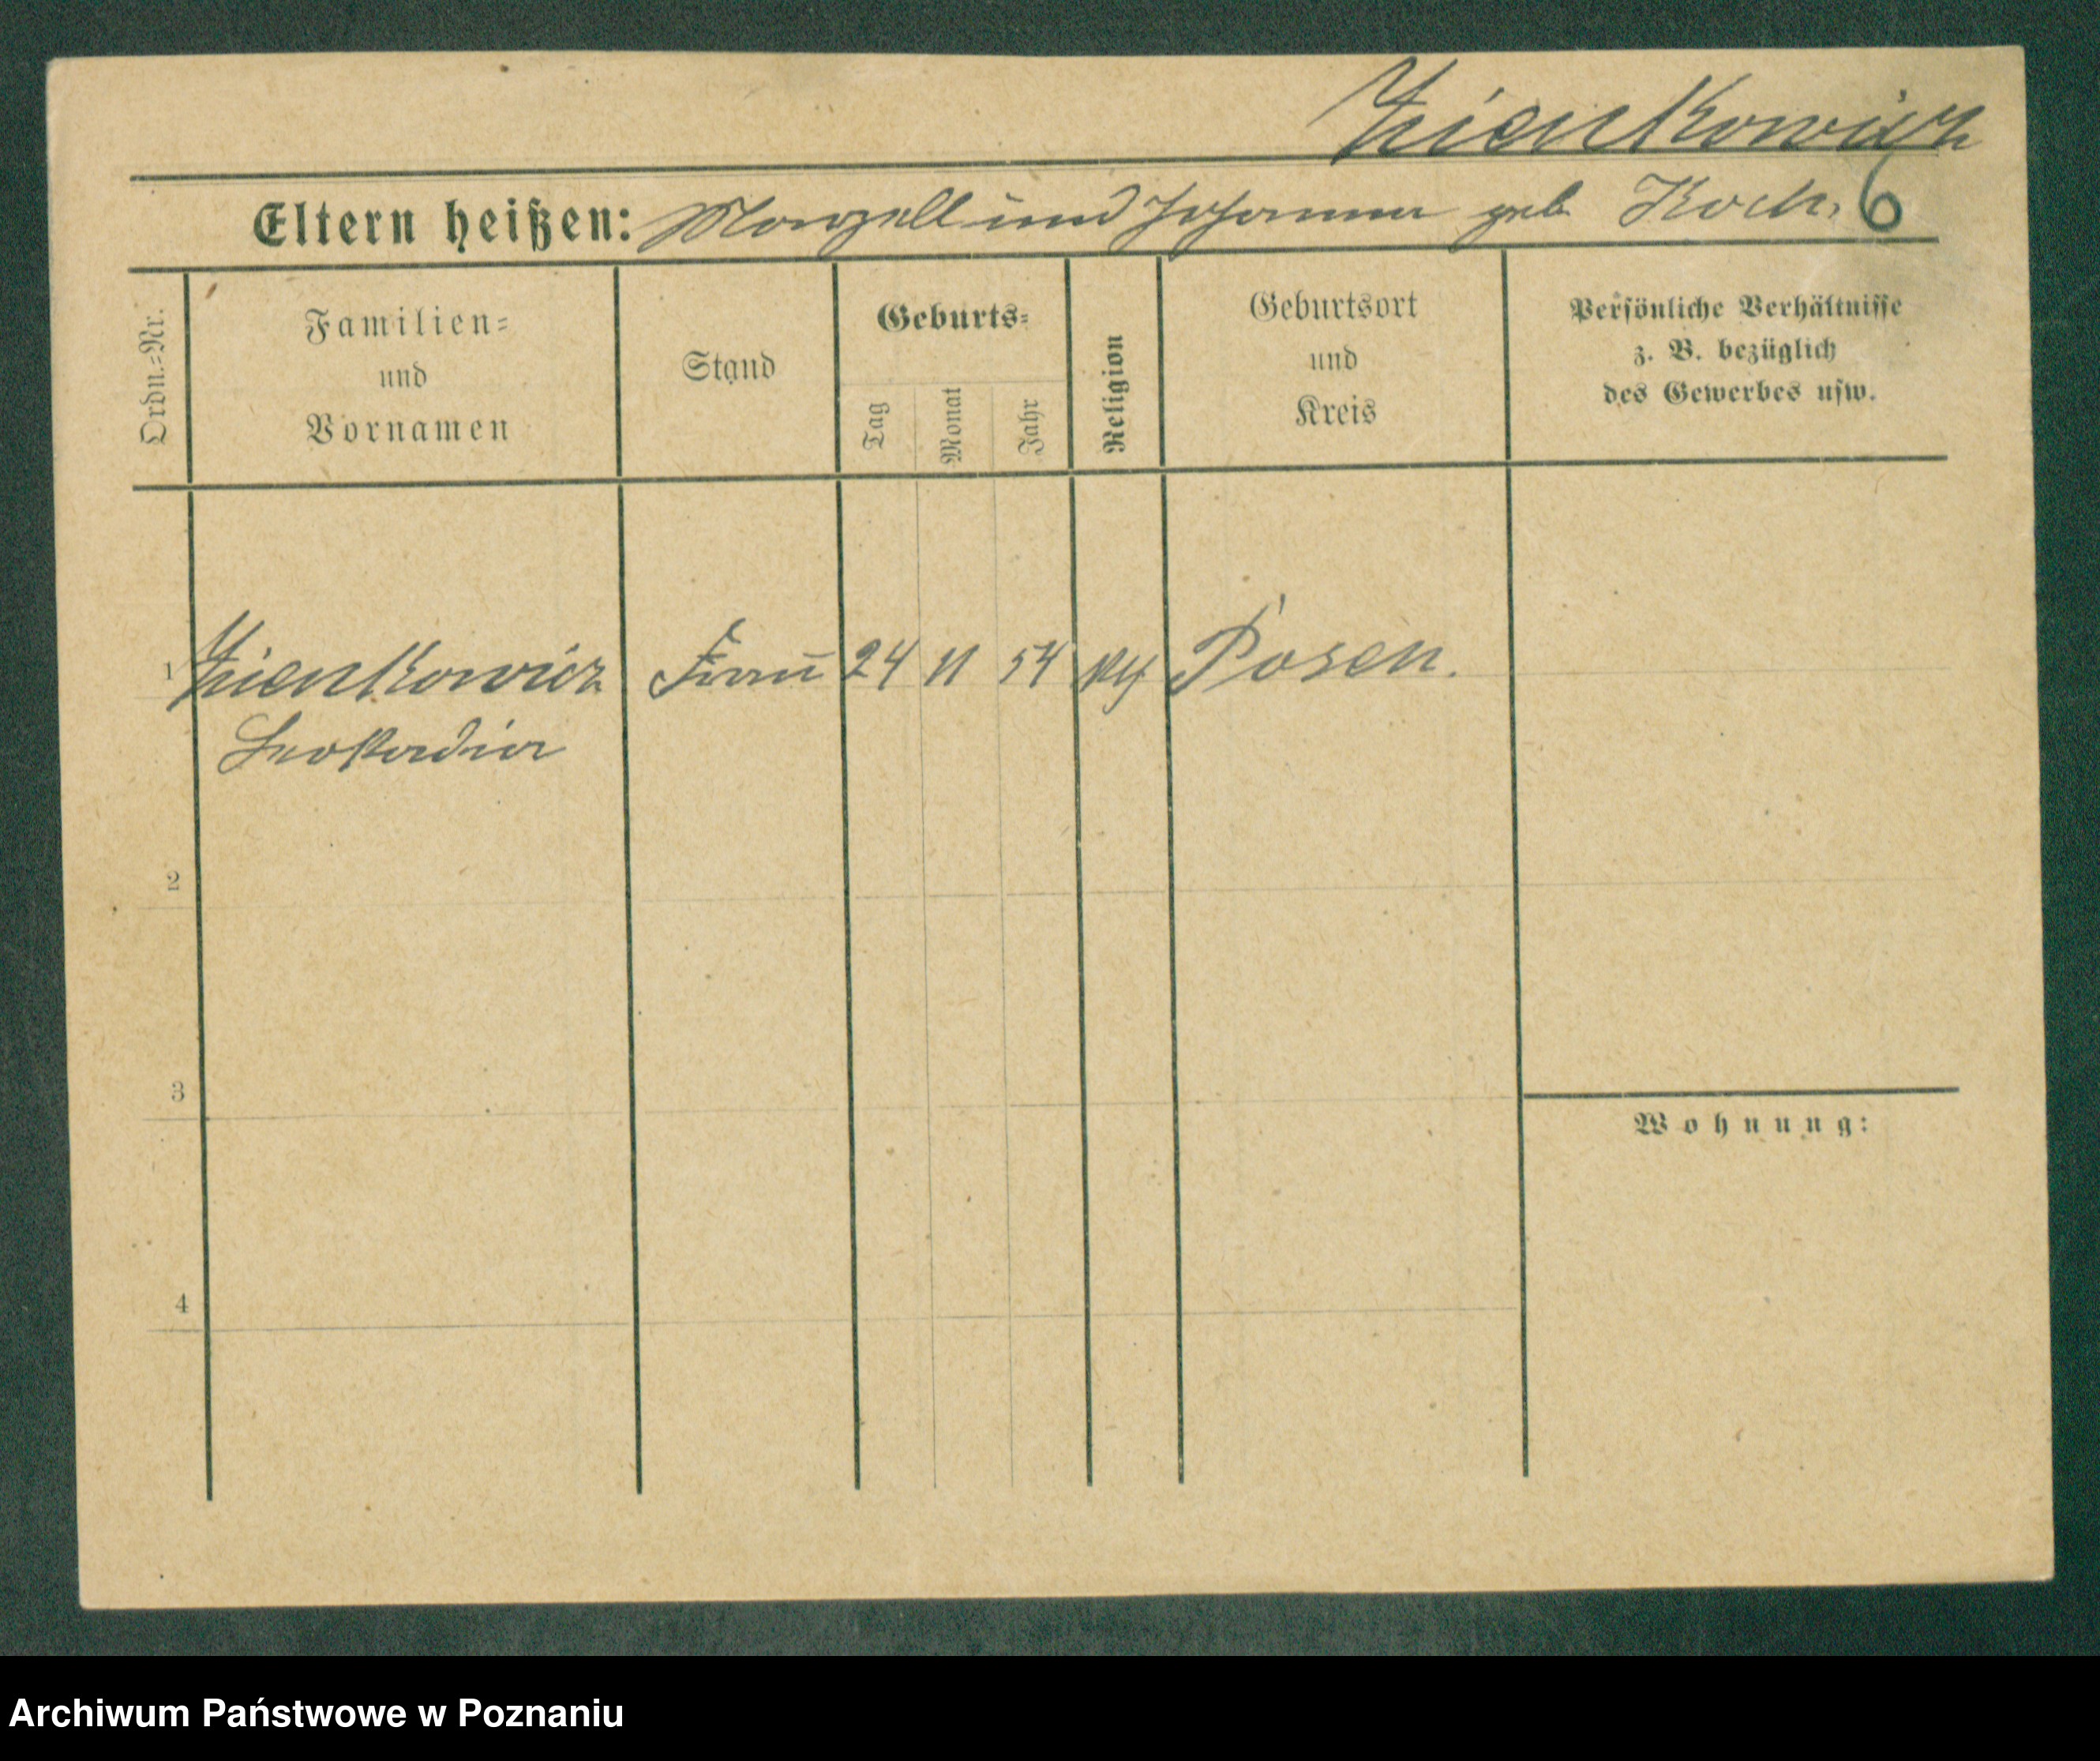 Zienkowicz
Eltern heißen: Marzell und Johanna geb. Koch. 6
Ordn.=Nr.
Familien=
und
Vornamen
Stand
Geburts=
Tag
Monat
Jahr
Religion
Geburtsort
und
Kreis
Persönliche Verhältnisse
z. B. bezüglich
des Gewerbes usw.
1 Zienkowicz Frau 24 11 54 Posen.
Leokardia
2
3
Wohnung:
4
Archiwum Państwowe w Poznaniu